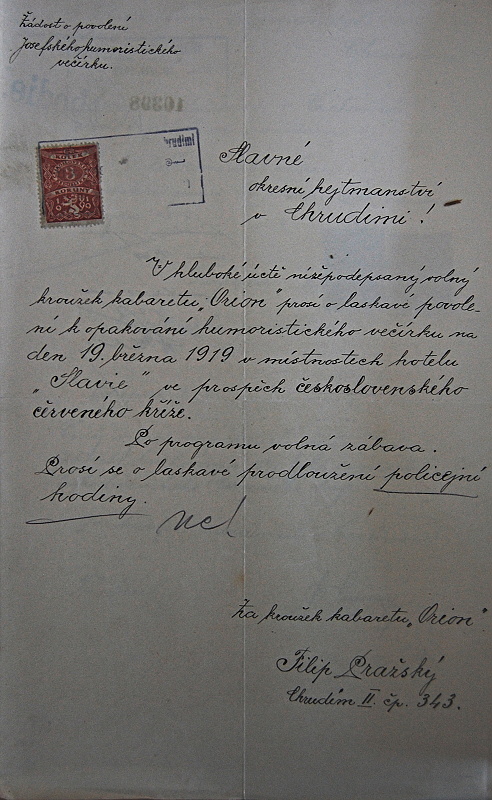 Žádost o povolení
Josefského humoristického
večírku.
10398
Slavné
okresní hejtmanství
v Chrudimi!
V hluboké úctě nížepodepsaný volný
kroužek kabaretu „Orion" prosí o laskavé povole-
ní k opakování humoristického večírku na
den 19. března 1919 v místnostech hotelu
„Slavie" ve prospěch československého
červeného kříže.
Po programu volná zábava.
Prosí se o laskavé prodloužení policejní
hodiny.
Ne!
Za kroužek kabaretu „Orion"
Filip Pražský
Chrudim II. čp. 343.